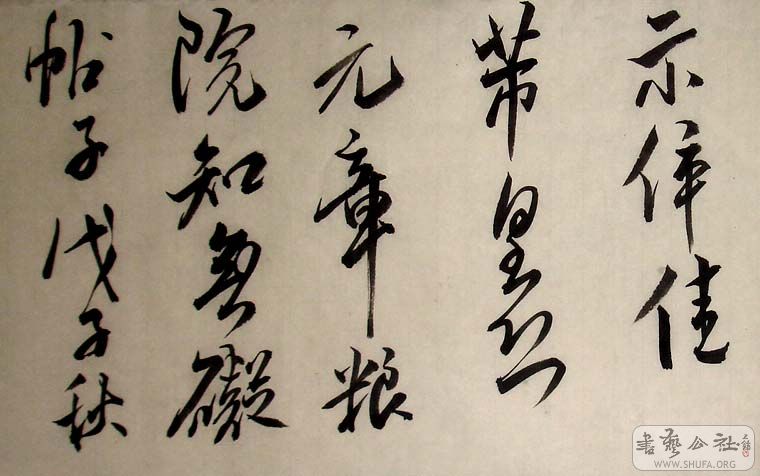 示佳
芾皇恐
元章粮
院知無礙
帖子戊子秋
書藝公社
WWW.SHUFA.ORG